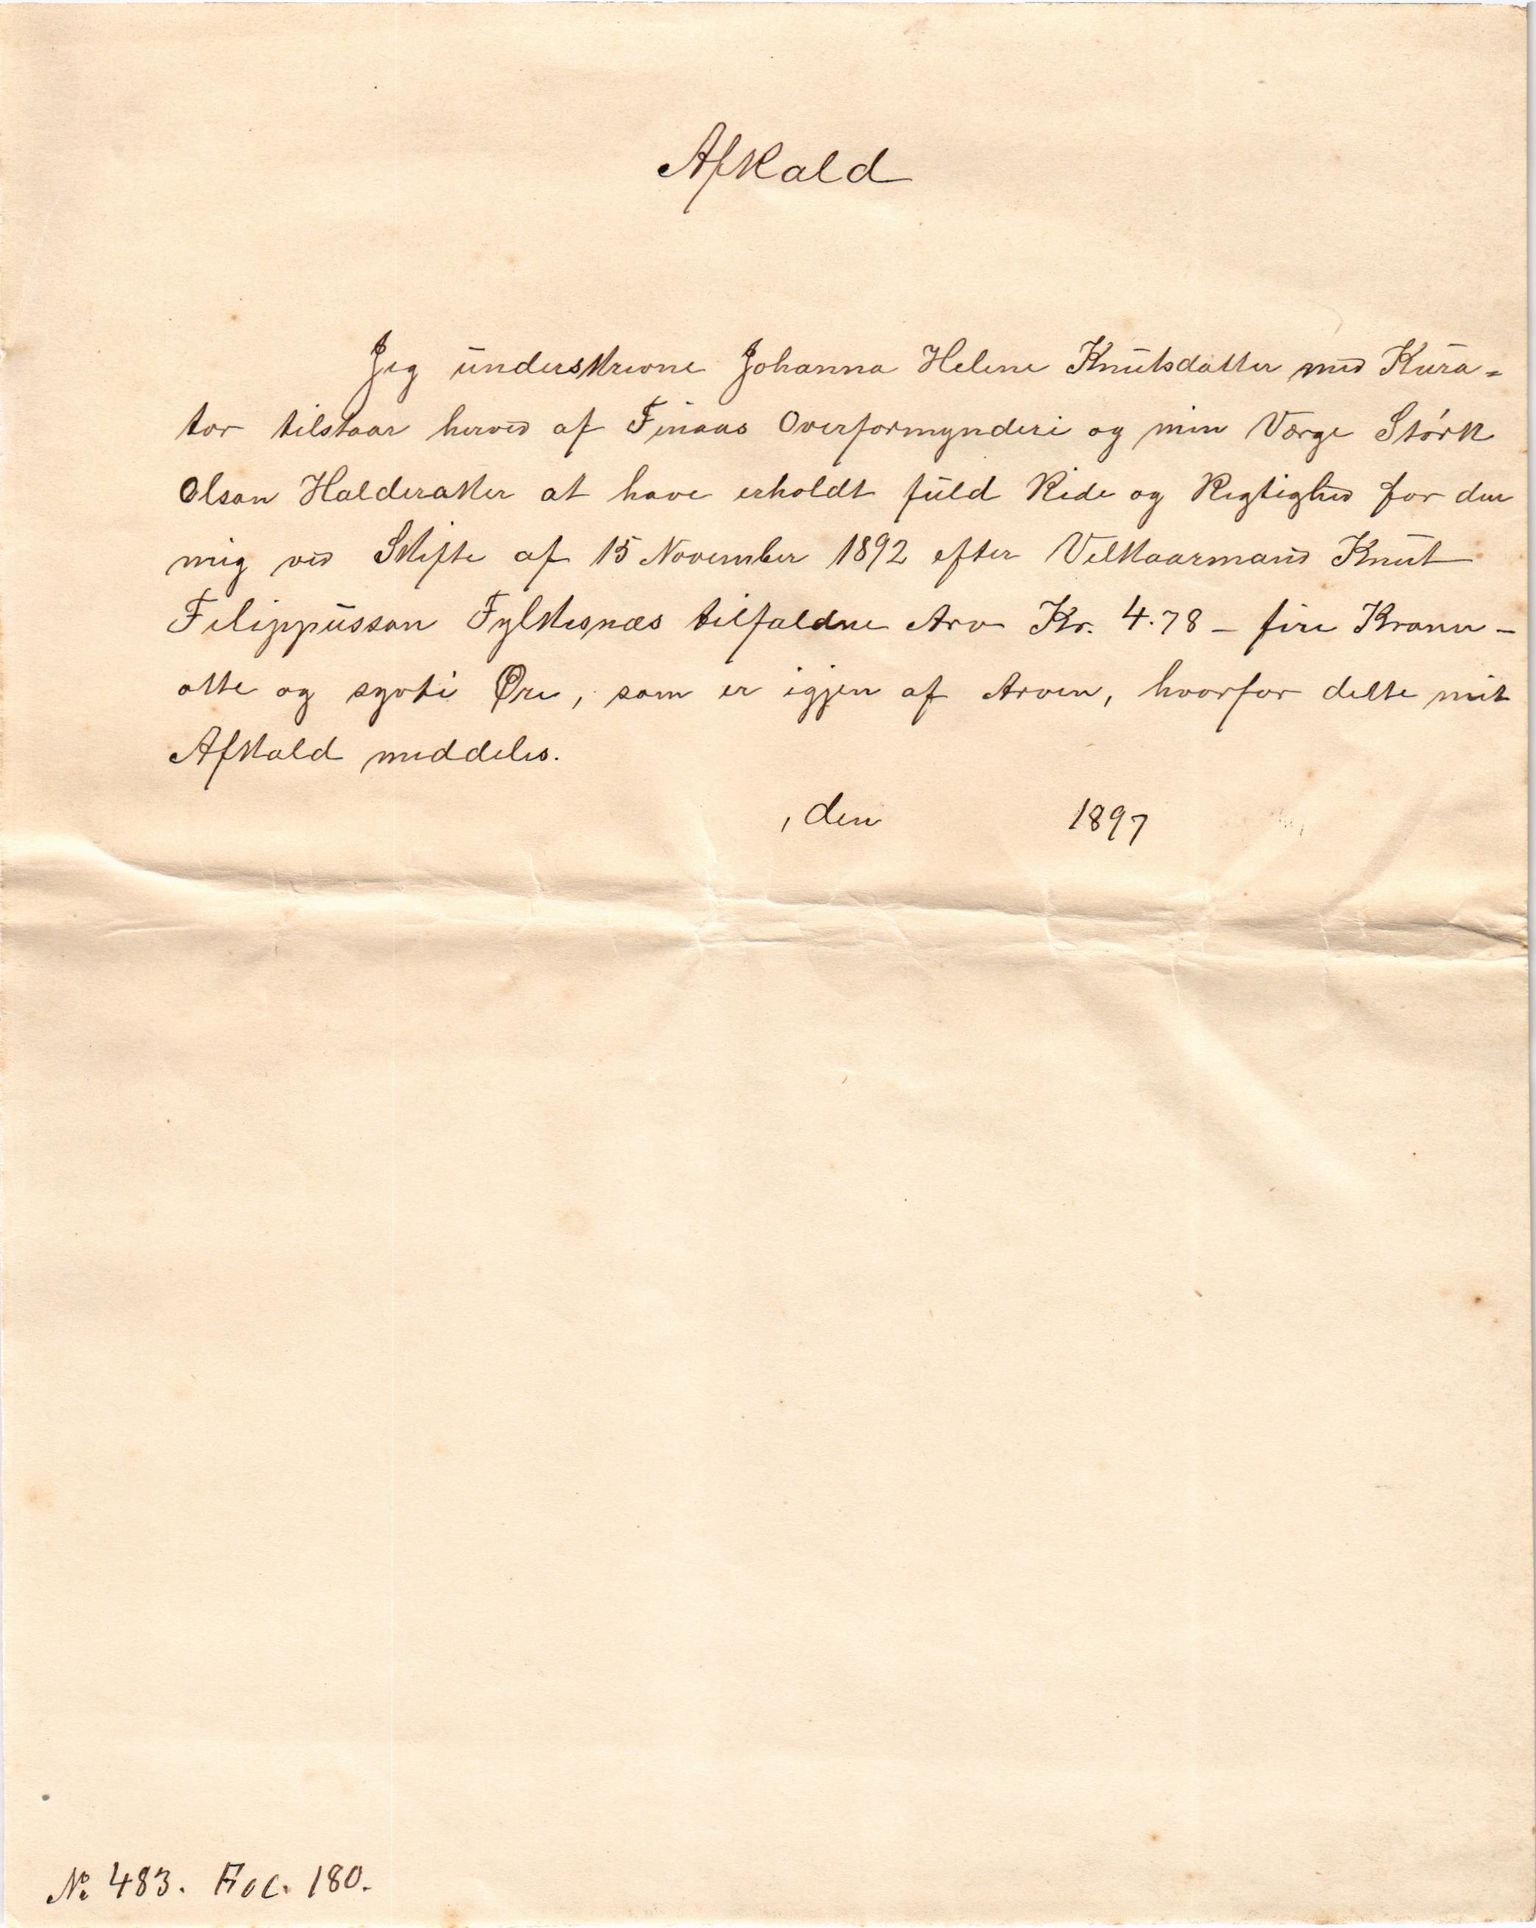 Afkald
Jeg underskrevne Johanna Helene Knutsdatter med Kura-
tor tilstaar herved af Finaas Overformynderi og min Værge Størk
Olson Halderaker at have erholdt fuld Rede og Rigtighed for den
mig ved Skifte af 15 November 1892 efter Velkaarmand Knut
Filippusson Fylkesnæs tilfaldne Arv Kr. 4.78 – fire Kroner –
otte og syvti Øre, som er igjen af Arven, hvorfor dette mit
Afkald meddeles.
, den 1897
No 483. Fol. 180.